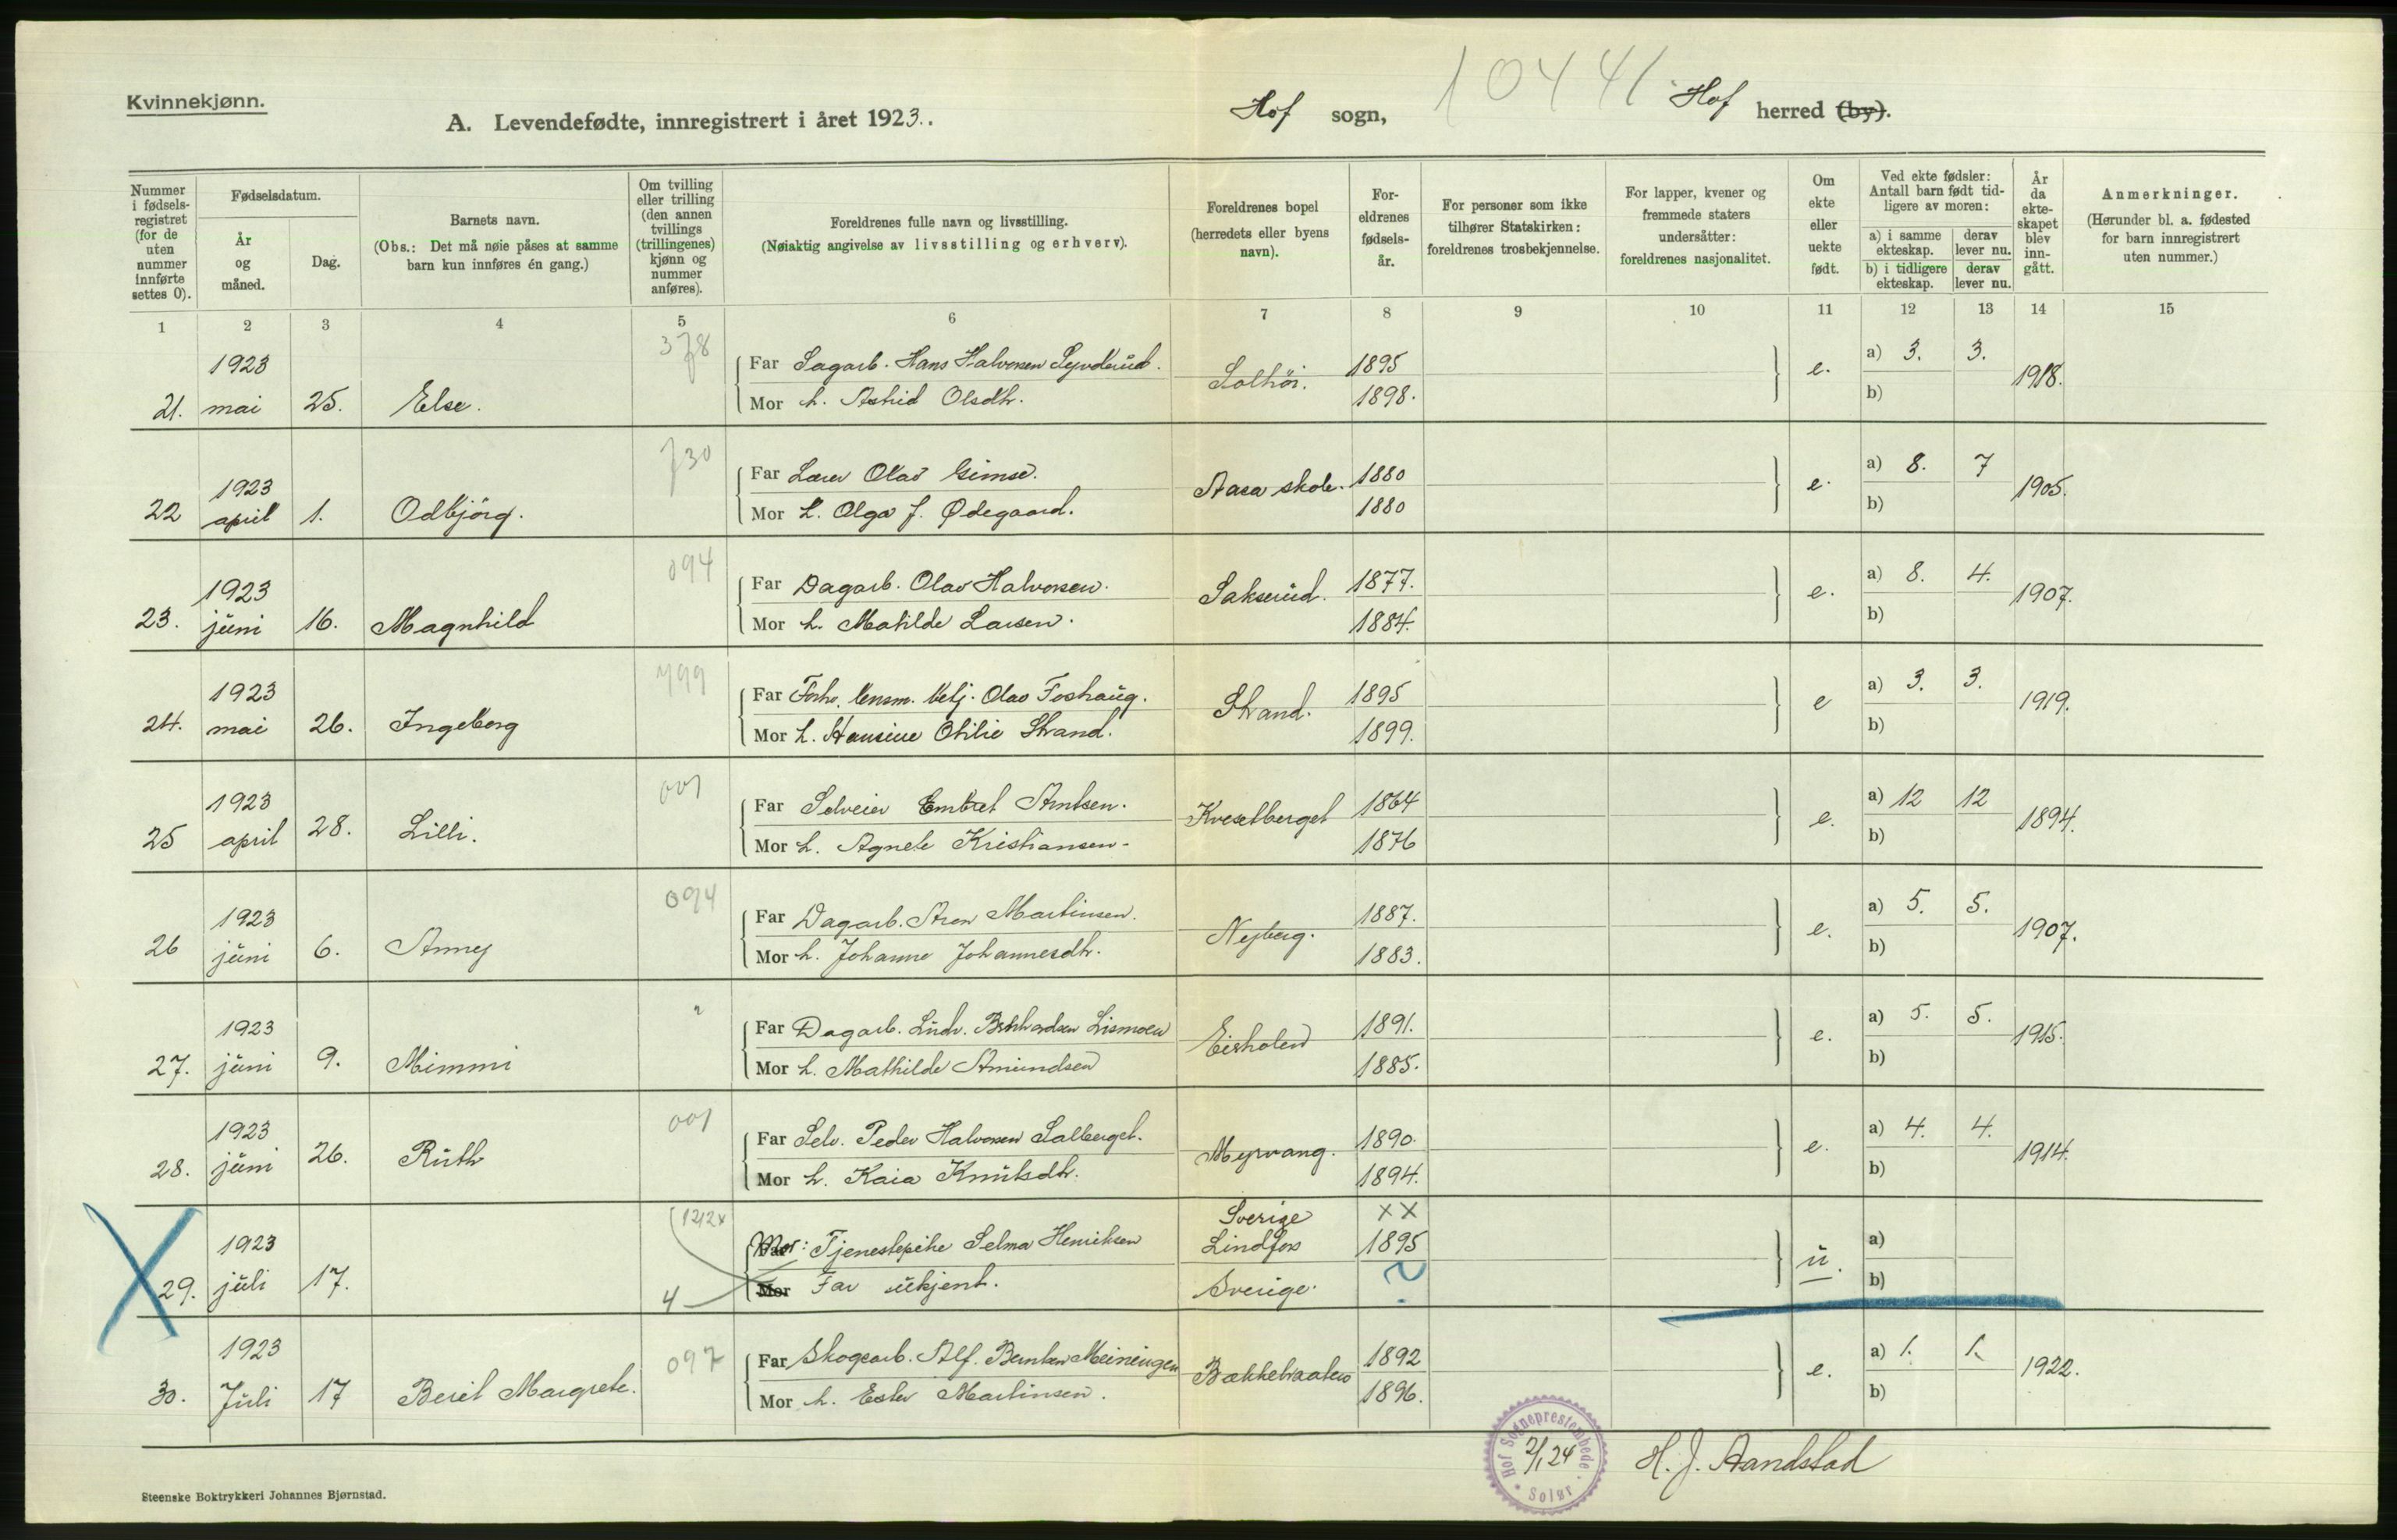 Kvinnekjønn.
A. Levendefødte, innregistrert i året 1923.
Hof sogn,
10441
Hof herred (by).
Nummer i fødsels-registret (for de uten nummer innførte settes 0).
Fødselsdatum.
År og måned.
Dag.
Barnets navn.
(Obs.: Det må nøie påses at samme barn kun innføres én gang.)
Om tvilling eller trilling (den annen tvillings (trillingenes) kjønn og nummer anføres).
Foreldrenes fulle navn og livsstilling.
(Nøiaktig angivelse av livsstilling og erhverv).
Foreldrenes bopel (herredets eller byens navn).
For-eldrenes fødsels-år.
For personer som ikke tilhører Statskirken: foreldrenes trosbekjennelse.
For lapper, kvener og fremmede staters undersåtter: foreldrenes nasjonalitet.
Om ekte eller uekte født.
Ved ekte fødsler: Antall barn født tid-ligere av moren:
a) i samme ekteskap.
derav lever nu.
b) i tidligere ekteskap.
derav lever nu.
År da ekte-skapet blev inn-gått.
Anmerkninger.
(Herunder bl. a. fødested for barn innregistrert uten nummer.)
1 2 3 4 5 6 7 8 9 10 11 12 13 14 15
378
1923 Far Sagarb. Hans Halvorsen Syvderud. Solhöi. 1895 e. a) 3. 3. 1918.
21. mai 25. Else. Mor h. Astrid Olsdtr. 1898. b)
730
1923 Far Lærer Olav Gimse. Aasa skole. 1880 e. a) 8. 7 1905.
22 april 1. Odbjörg. Mor h. Olga J. Ødegaard. 1880 b)
094
1923 Far Dagarb. Olav Halvorsen. Sakserud. 1877. e. a) 8. 4. 1907.
23. juni 16. Magnhild Mor h. Matilde Larsen. 1884. b)
499
1923 Far Olav Foshaug. Strand. 1895 e a) 3. 3. 1919.
24. mai 26. Ingeborg Mor h. Hansine Otilie Strand. 1899. b)
001
1923 Far Selveier Embret Arntsen. Kveselberget 1864 e. a) 12 12 1894.
25 april 28. Lilli. Mor h. Agnete Kristiansen. 1876 b)
094
1923 Far Dagarb. Aron Martinsen. Nyberg. 1887. e. a) 5. 5. 1907.
26 juni 6. Anny Mor h. Johanne Johannesdtr. 1883. b)
"
1923 Far Dagarb. Ludv. Lismoen 1891. e. a) 5. 5. 1915.
27. juni 9. Mimmi Mor h. Mathilde Amundsen 1885. b)
001
1923 Far Selv. Peder Halvorsen Salberget. Myrvang. 1890. e. a) 4. 4. 1914.
28. juni 26. Ruth Mor h. Kaia Knutsdtr. 1894. b)
1212x Sverige XX
1923 Far Mor: Tjenestepike Selma Henriksen Lindfors 1895 u. a)
29. juli 17. 4 Mor Far ukjent. Sverige. ? b)
097
1923 Far Skogearb. Alf. Berntsen Meiningen 1892 e. a) 1. 1. 1922.
30. Juli 17 Berit Margrete. Mor h. Ester Martinsen. 1896. b)
Hof Sogneprestembede. Solør
2/1 24
H. J. Aandstad
Steenske Boktrykkeri Johannes Bjørnstad.